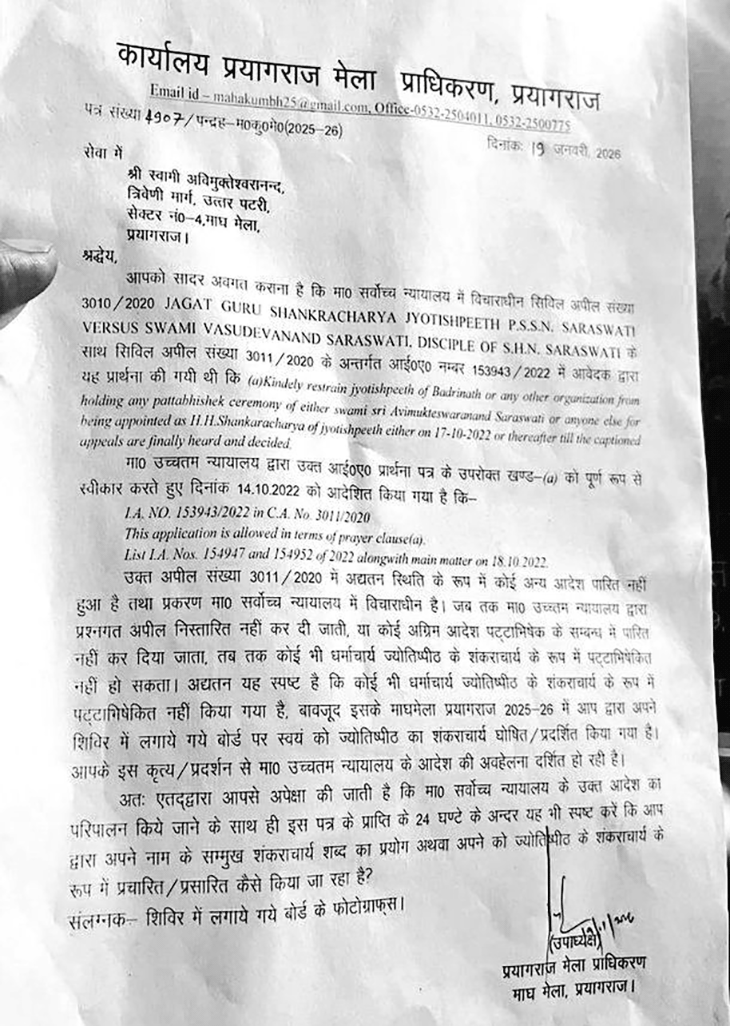 कार्यालय प्रयागराज मेला प्राधिकरण, प्रयागराज
Email id – mahakumbh25@gmail.com, Office-0532-2504011, 0532-2500775
पत्र संख्या 4907/पन्द्रह-म0कु0मे0(2025-26)
दिनांक: 19 जनवरी, 2026
सेवा में
श्री स्वामी अविमुक्तेश्वरानन्द,
त्रिवेणी मार्ग, उत्तर पटरी,
सेक्टर नं0-4,माघ मेला,
प्रयागराज।
श्रद्धेय,
आपको सादर अवगत कराना है कि मा0 सर्वोच्च न्यायालय में विचाराधीन सिविल अपील संख्या
3010/2020 JAGAT GURU SHANKRACHARYA JYOTISHPEETH P.S.S.N. SARASWATI
VERSUS SWAMI VASUDEVANAND SARASWATI, DISCIPLE OF S.H.N. SARASWATI के
साथ सिविल अपील संख्या 3011/2020 के अन्तर्गत आई0ए0 नम्बर 153943/2022 में आवेदक द्वारा
यह प्रार्थना की गयी थी कि (a)Kindely restrain jyotishpeeth of Badrinath or any other organization from
holding any pattabhishek ceremony of either swami sri Avimukteswaranand Saraswati or anyone else for
being appointed as H.H.Shankaracharya of jyotishpeeth either on 17-10-2022 or thereafter till the captioned
appeals are finally heard and decided.
मा0 उच्चतम न्यायालय द्वारा उक्त आई0ए0 प्रार्थना पत्र के उपरोक्त खण्ड-(a) को पूर्ण रूप से
स्वीकार करते हुए दिनांक 14.10.2022 को आदेशित किया गया है कि–
I.A. NO. 153943/2022 in C.A. No. 3011/2020
This application is allowed in terms of prayer clause(a).
List I.A. Nos. 154947 and 154952 of 2022 alongwith main matter on 18.10.2022.
उक्त अपील संख्या 3011/2020 में अद्यतन स्थिति के रूप में कोई अन्य आदेश पारित नहीं
हुआ है तथा प्रकरण मा0 सर्वोच्च न्यायालय में विचाराधीन है। जब तक मा0 उच्च्तम न्यायालय द्वारा
प्रश्नगत अपील निस्तारित नहीं कर दी जाती, या कोई अग्रिम आदेश पट्टाभिषेक के सम्बन्ध में पारित
नहीं कर दिया जाता, तब तक कोई भी धर्माचार्य ज्योतिष्पीठ के शंकराचार्य के रूप में पट्टाभिषेकित
नहीं हो सकता। अद्यतन यह स्पष्ट है कि कोई भी धर्माचार्य ज्योतिष्पीठ के शंकराचार्य के रूप में
पट्टाभिषेकित नहीं किया गया है, बावजूद इसके माघमेला प्रयागराज 2025-26 में आप द्वारा अपने
शिविर में लगाये गये बोर्ड पर स्वयं को ज्योतिष्पीठ का शंकराचार्य घोषित/प्रदर्शित किया गया है।
आपके इस कृत्य/प्रदर्शन से मा0 उच्चतम न्यायालय के आदेश की अवहेलना दर्शित हो रही है।
अतः एतद्द्वारा आपसे अपेक्षा की जाती है कि मा0 सर्वोच्च न्यायालय के उक्त आदेश का
परिपालन किये जाने के साथ ही इस पत्र के प्राप्ति के 24 घण्टे के अन्दर यह भी स्पष्ट करें कि आप
द्वारा अपने नाम के सम्मुख शंकराचार्य शब्द का प्रयोग अथवा अपने को ज्योतिष्पीठ के शंकराचार्य के
रूप में प्रचारित/प्रसारित कैसे किया जा रहा है?
संलग्नक– शिविर में लगाये गये बोर्ड के फोटोग्राफ्स।
(उपाध्यक्ष)
प्रयागराज मेला प्राधिकरण
माघ मेला, प्रयागराज।